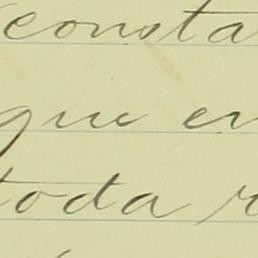 consta
que en
toda